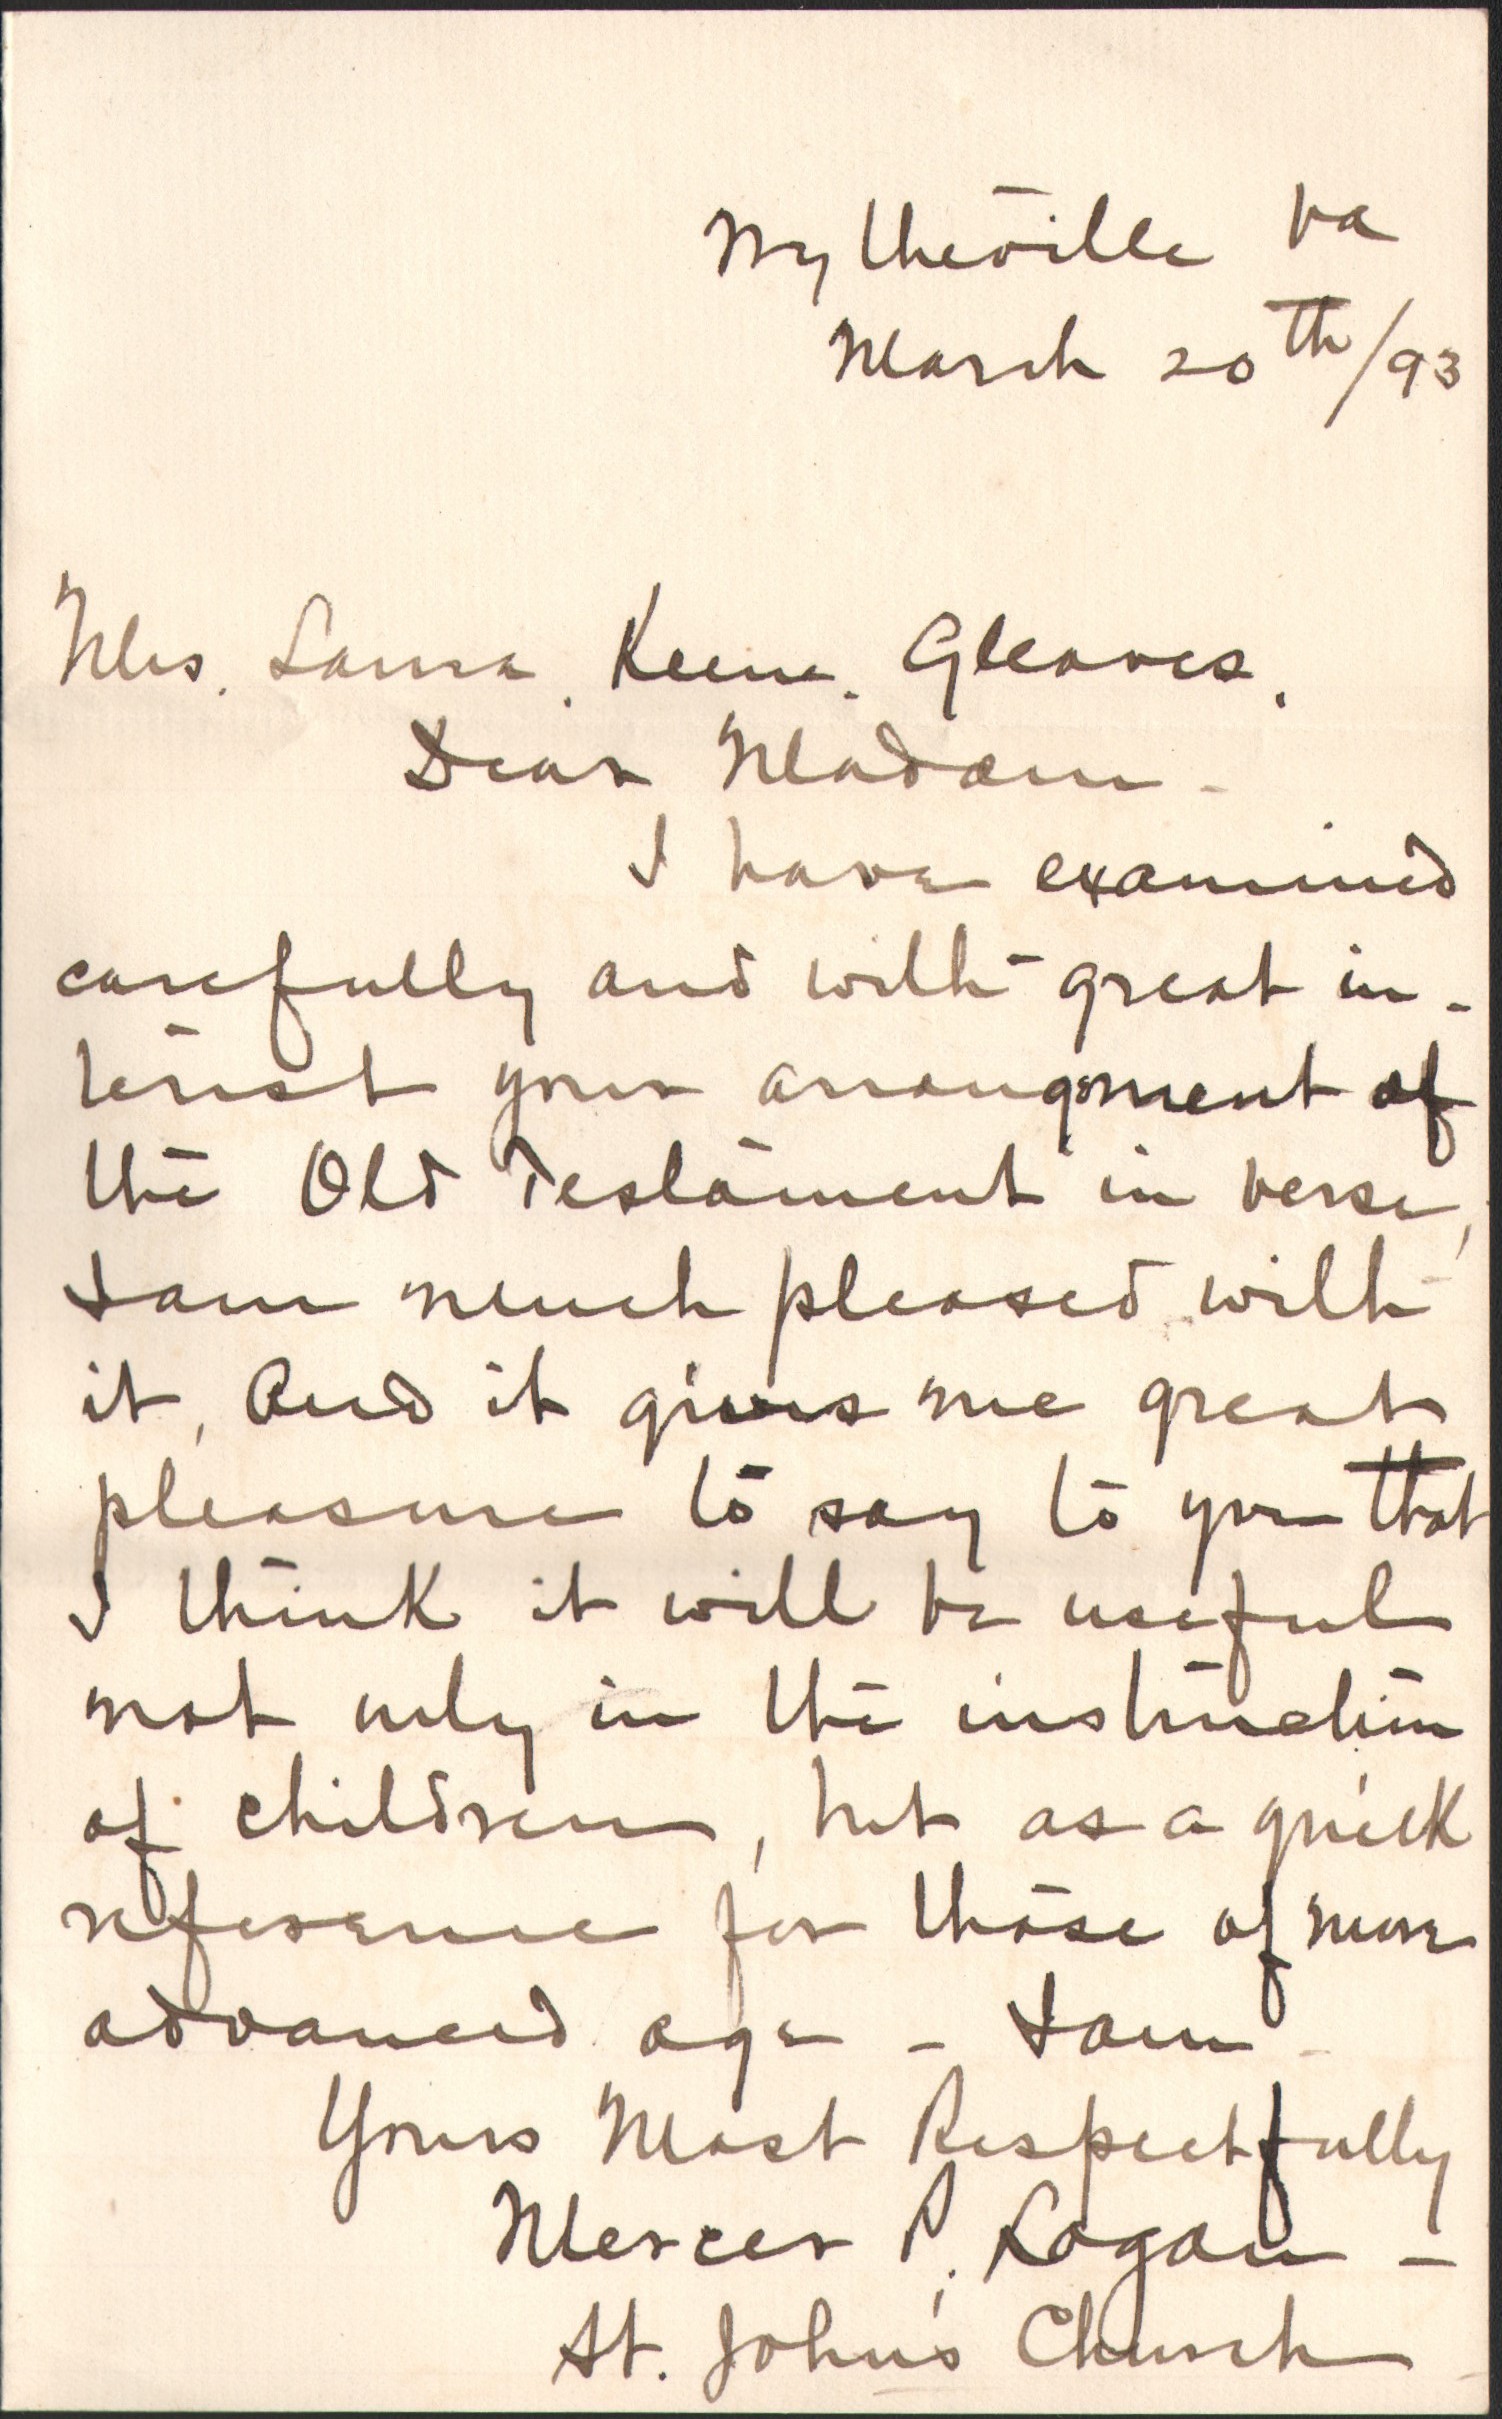 Wytheville Va
March 20th/93
Mrs. Laura. Keene. Gleaves.
Dear Madam -
I have examined
carefully and with great in-
terest your arrangment of
the Old Testament in verse,
I am much pleased with
it, And it gives me great
pleasure to say to you that
I think it will be useful
not only in the instruction
of children, but as a quick
reference for those of more
advanced age - I am -
Yours Most Respectfully
Mercer P. Logan -
St. John's Church